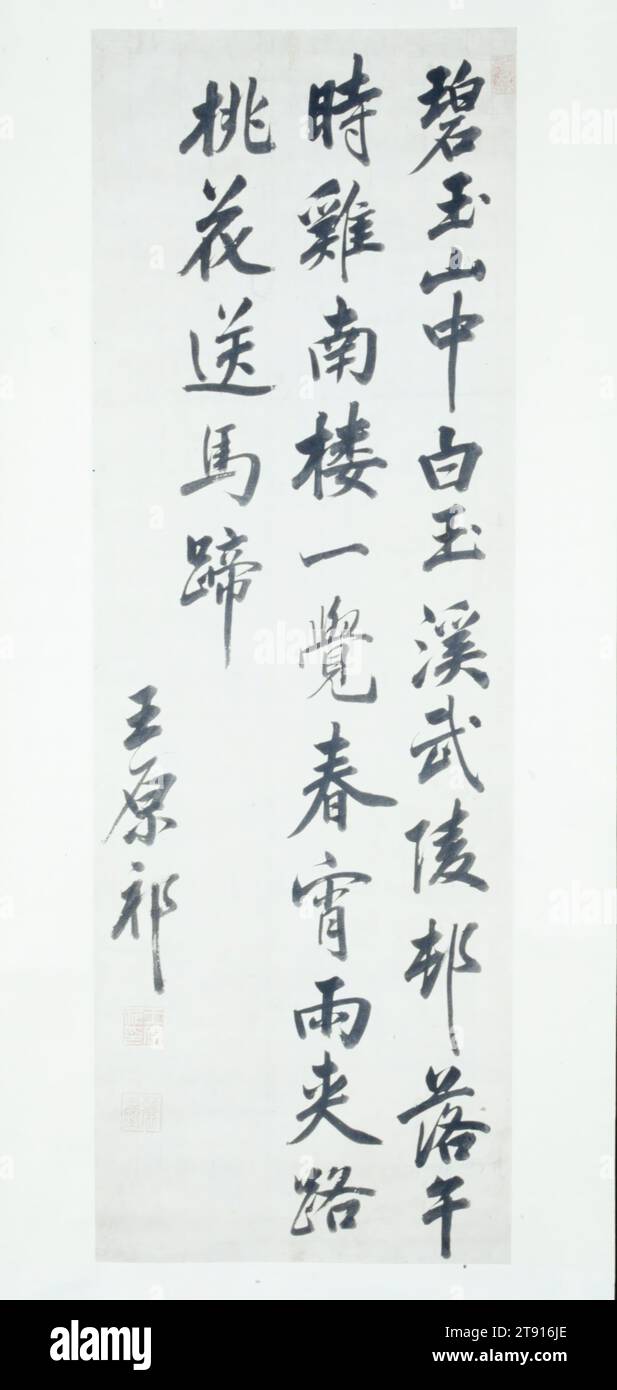 碧玉山中白玉溪武陵邨落午
時雞南楼一覺春宵雨夾路
桃花送馬蹄
王原祁
alamy
Image ID: 2T916JE
www.alamy.com